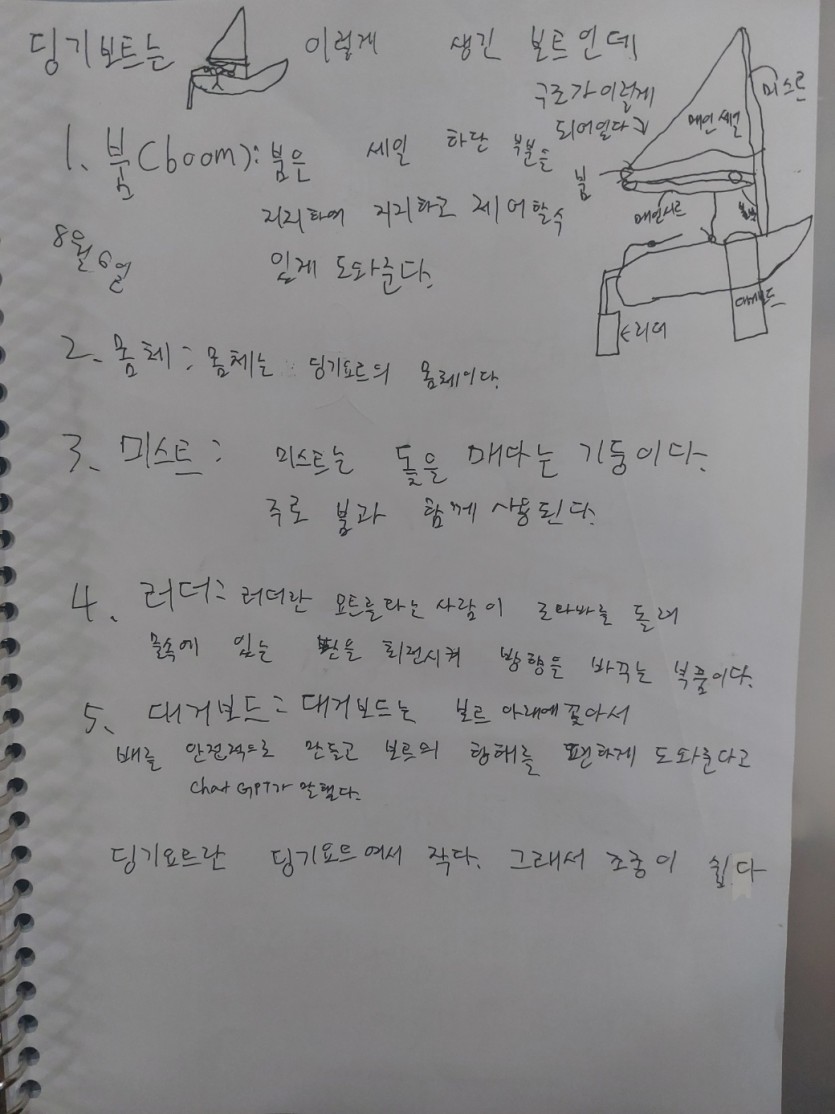 딩기보트는 이렇게 생긴 보트인데
구조가 이렇게
되어있다
미스트
메인세일
붐
메인시트
러더
대거보드
1. 붐(boom): 붐은 세일 하단 부분을
지지하여 지지하고 제어할수
있게 도와준다.
8월 6일
2. 몸체: 몸체는 딩기요트의 몸체이다.
3. 미스트: 미스트는 돛을 매다는 기둥이다.
주로 붐과 함께 사용된다.
4. 러더: 러더란 요트를 타는 사람이 돌려
물속에 있는 판을 회전시켜 방향을 바꾸는 부품이다.
5. 대거보드: 대거보드는 보트 아래에 꽃아서
배를 안전적으로 만들고 보트의 항해를 편하게 도와준다고
Chat GPT가 말했다.
딩기요트란 딩기요트여서 작다. 그래서 조종이 쉽다